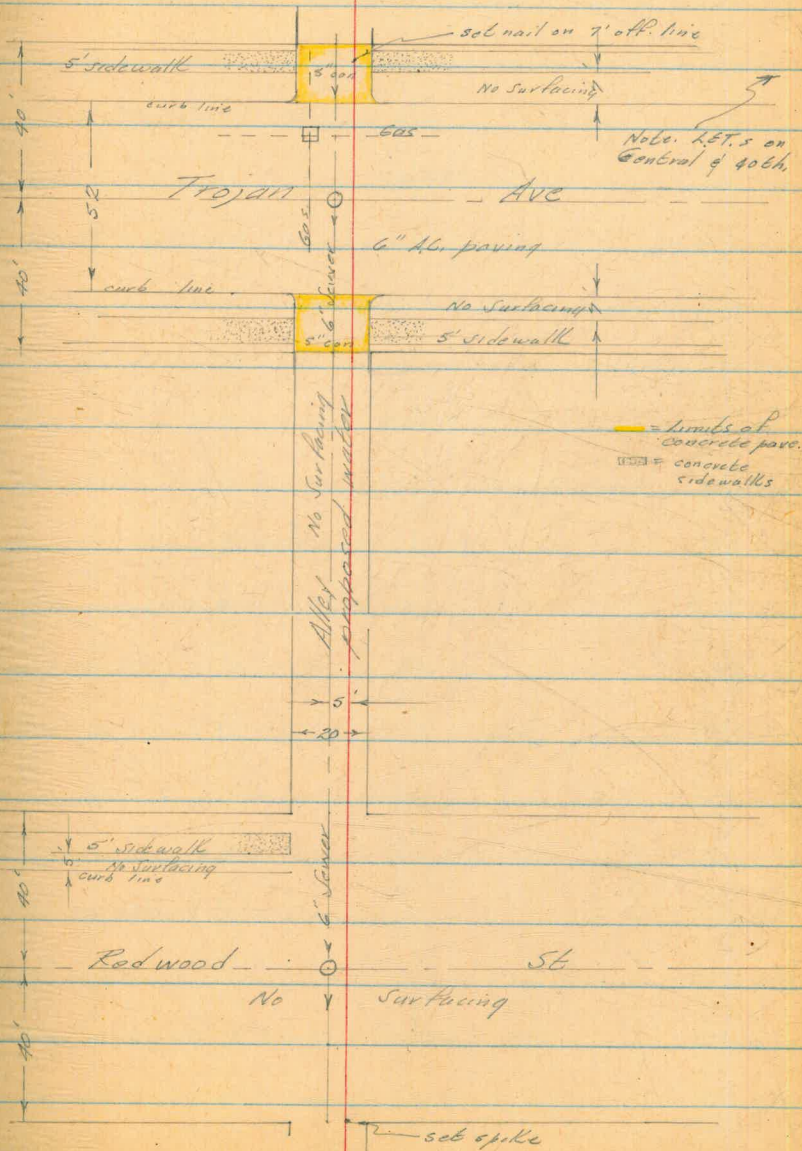 set nail on 7' off. line
5' sidewalk
5" con
No Surfacing
7'
curb line
40'
Gas
Note. L.E.T.s on
Central & 40th.
52
Trojan Ave
Gas
6" A.C. paving
40'
6" Sewer
curb line
No Surfacing
7'
5" con
5' sidewalk
= Limits of
concrete pave.
= concrete
sidewalks
Alley No Surfacing
proposed water
5'
20
5' sidewalk
5'
No Surfacing
curb line
6" Sewer
40'
Redwood St
No Surfacing
40'
set spike